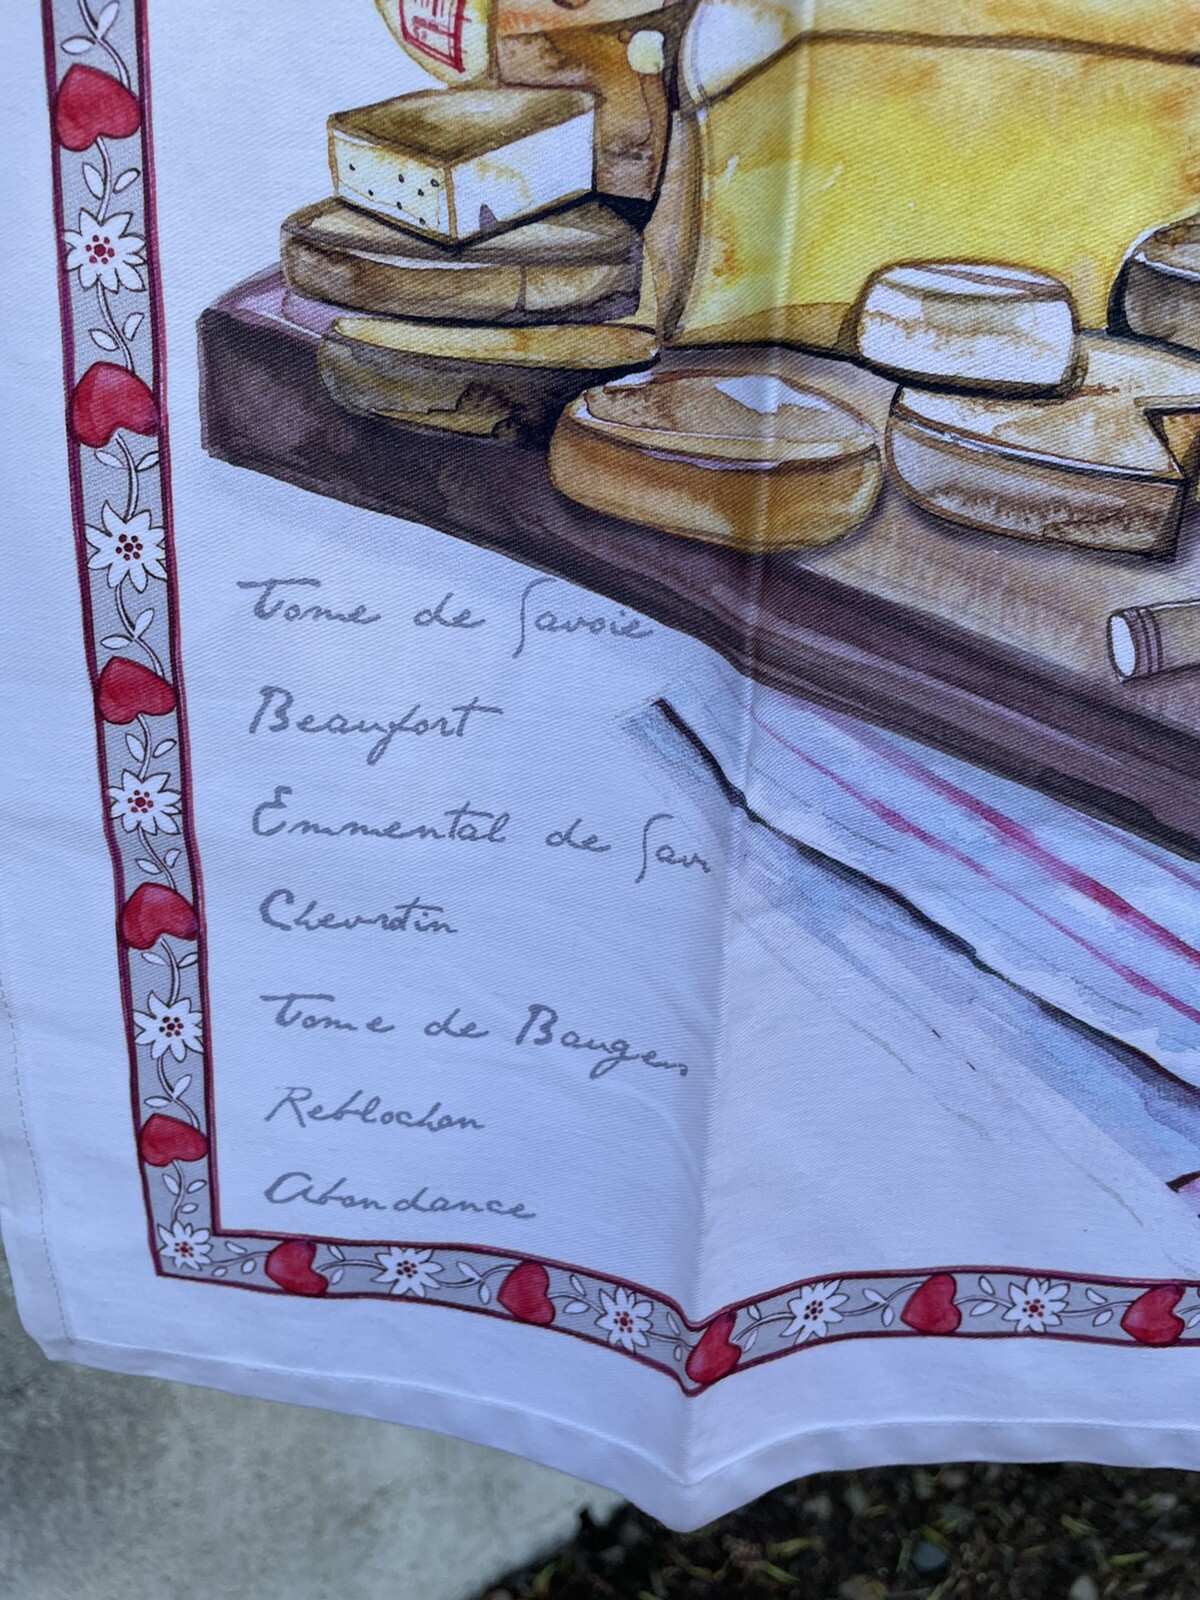 Tome de Savoie
Beaufort
Emmental de Savo
Chevrotin
Tome de Bauges
Reblochon
Abondance